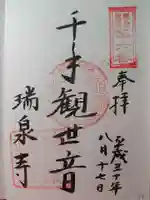 奉拝
平成三十年
八月十七日
千手観世音
瑞泉寺